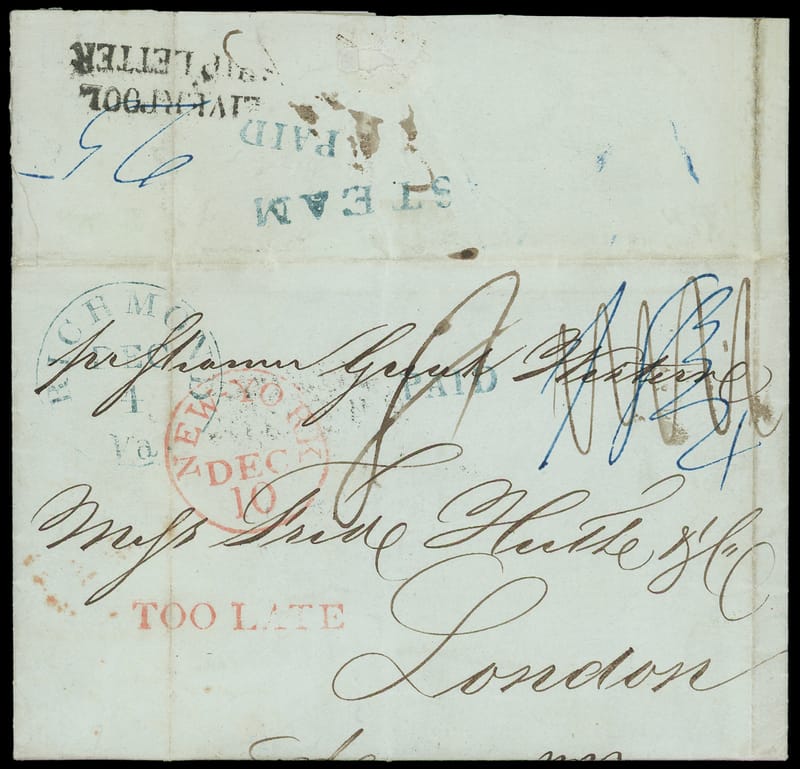 LIVERPOOL
SHIP LETTER
PAID
STEAM
RICHMOND
DEC
1
Va
per Steamer Great Western
PAID
NEW-YORK
DEC
10
Messrs Fredk Huth & Co
TOO LATE
London